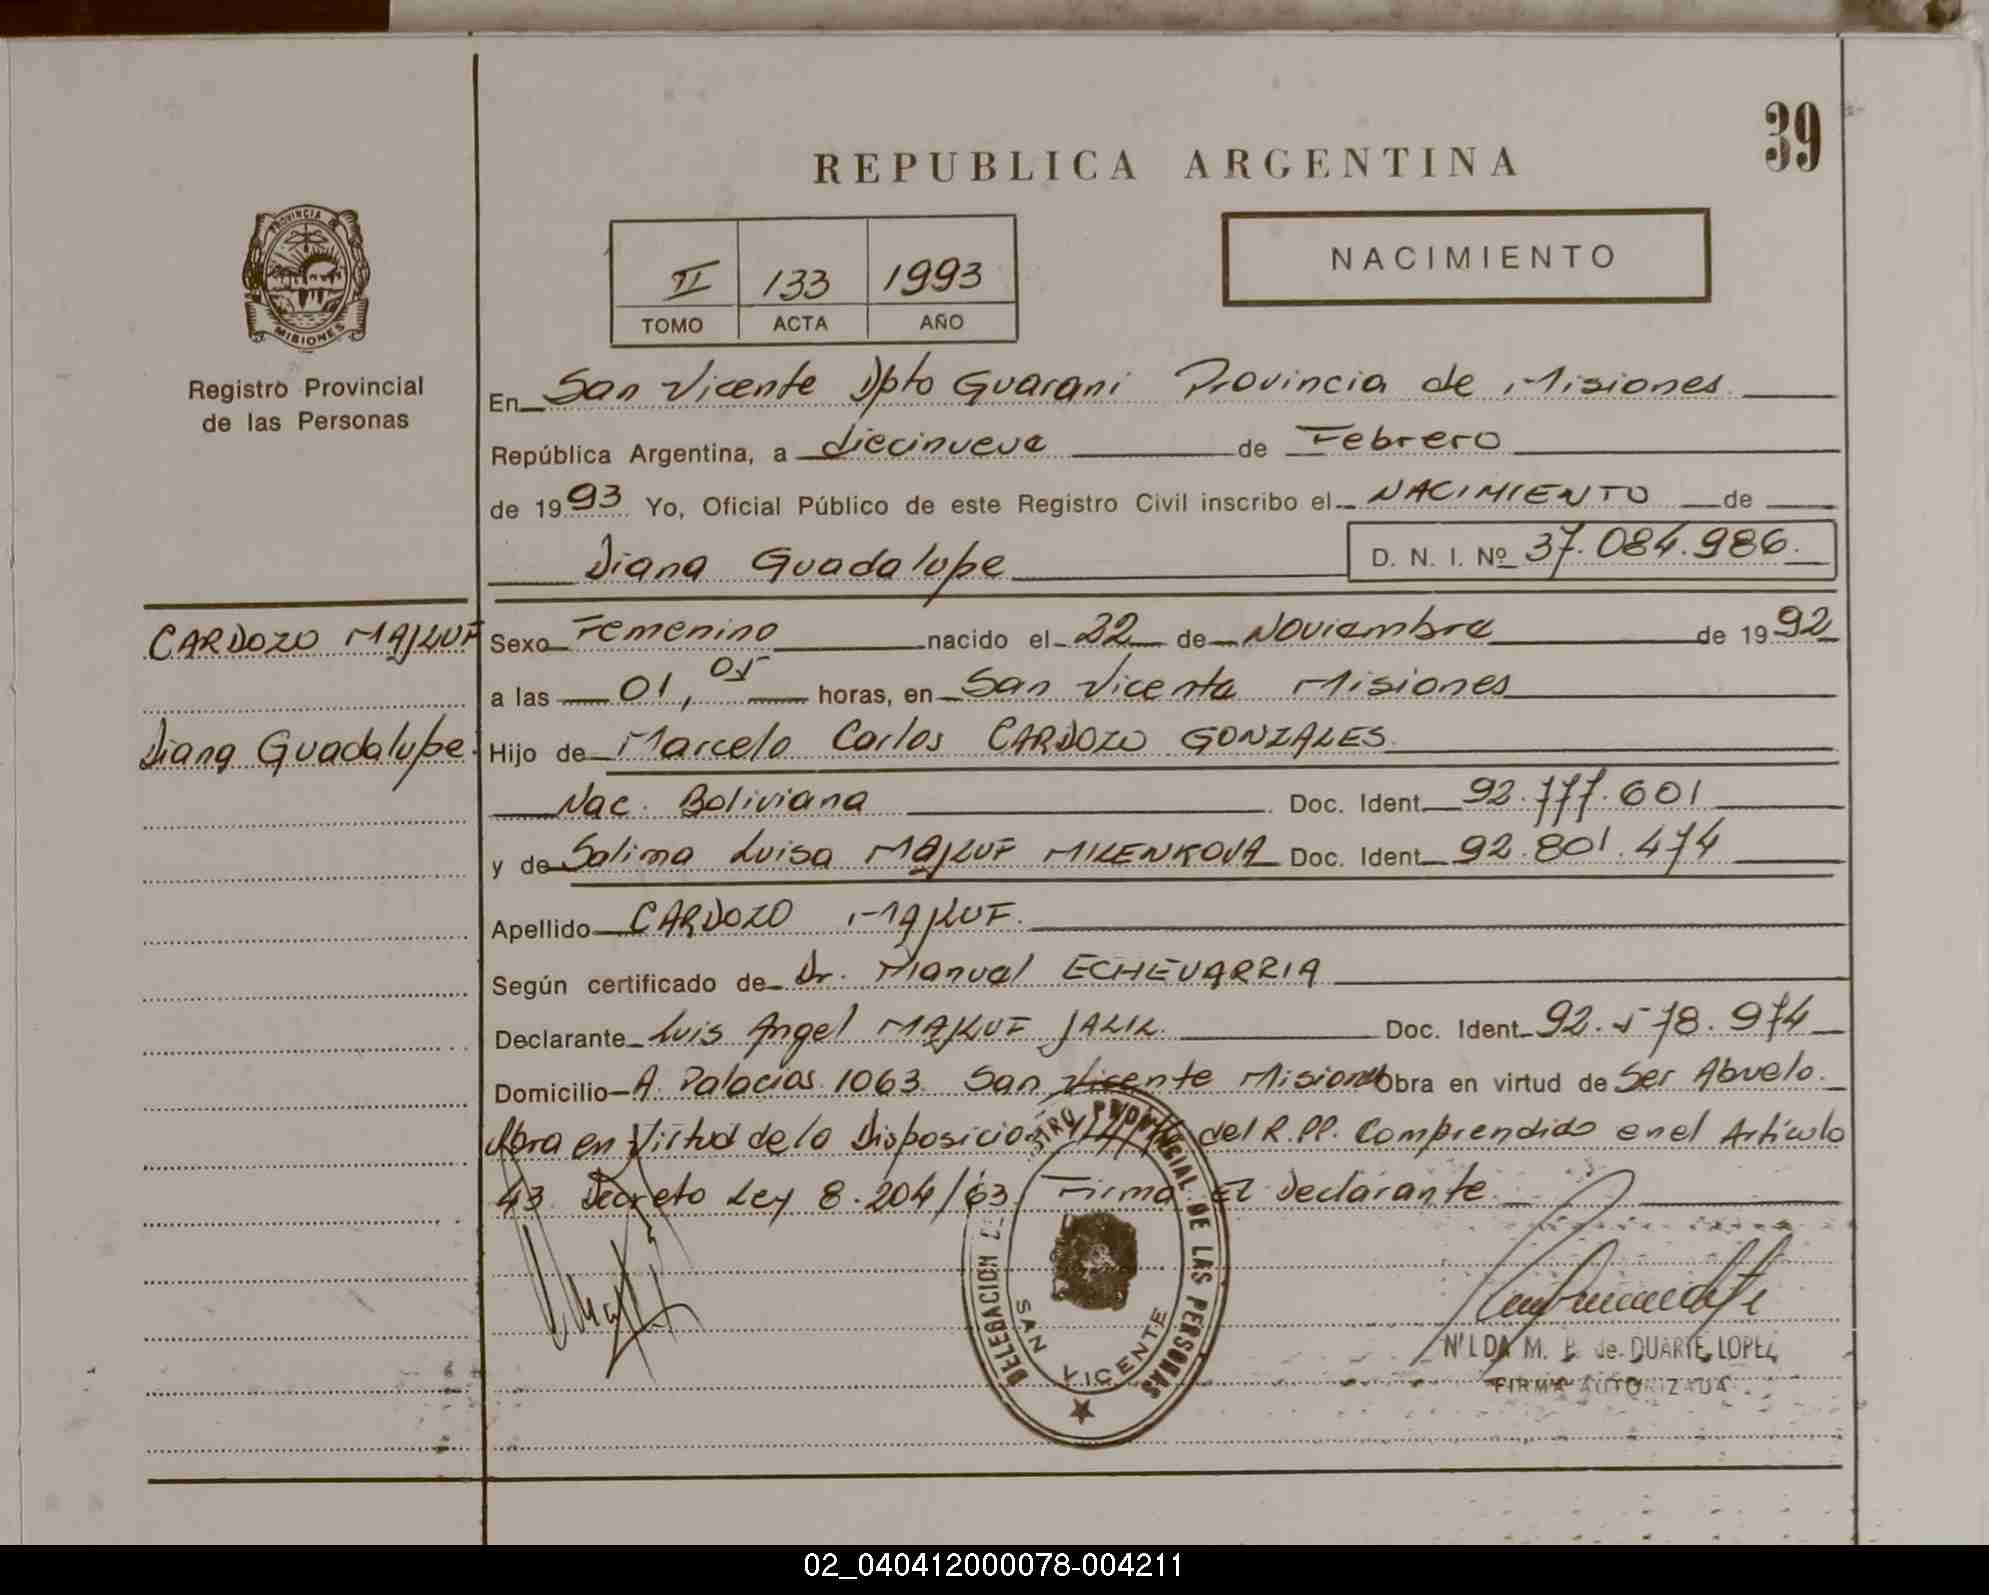 39
REPUBLICA ARGENTINA
PROVINCIA DE
MISIONES
Registro Provincial
de las Personas
II 133 1993
TOMO ACTA AÑO
NACIMIENTO
En San Vicente Dpto Guarani Provincia de Misiones
República Argentina, a diecinueve de Febrero
de 1993 Yo, Oficial Público de este Registro Civil inscribo el NACIMIENTO de
Diana Guadalupe D. N. I. Nº 37.084.986.
CARDOZO MAJLUF
Diana Guadalupe
Sexo Femenino nacido el 22 de Noviembre de 1992
a las 01,05 horas, en San Vicente Misiones
Hijo de Marcelo Carlos CARDOZO GONZALES
Nac. Boliviana Doc. Ident. 92.777.601
y de Salima Luisa MAJLUF MILENKOVA Doc. Ident 92.801.474
Apellido CARDOZO MAJLUF.
Según certificado de Dr. Manuel ECHEVARRIA
Declarante Luis Angel MAJLUF JALIL. Doc. Ident 92.578.974
Domicilio A. Palacios 1063 San Vicente Misiones Obra en virtud de Ser Abuelo.
Obra en Virtud de la Disposicion del R.PP. Comprendido en el Articulo
43 Decreto Ley 8.204/63 Firma El Declarante
DELEGACION PROVINCIAL DE LAS PERSONAS
SAN VICENTE
NILDA M. de DUARTE LOPEZ
FIRMA AUTORIZADA
02_040412000078-004211